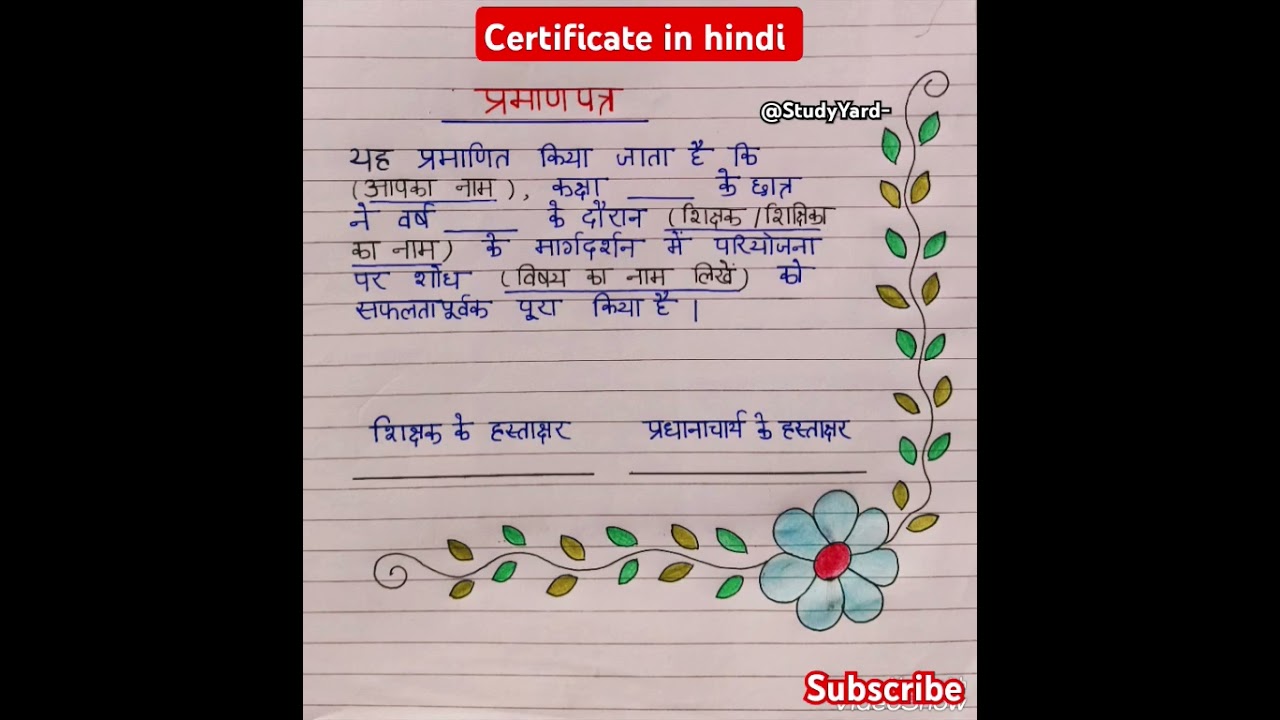 Certificate in hindi
प्रमाण पत्र
@StudyYard-
यह प्रमाणित किया जाता है कि
(आपका नाम), कक्षा ____ के छात्र
ने वर्ष ____ के दौरान (शिक्षक / शिक्षिका
का नाम) के मार्गदर्शन में परियोजना
पर शोध (विषय का नाम लिखें) को
सफलतापूर्वक पूरा किया है।
शिक्षक के हस्ताक्षर
प्रधानाचार्य के हस्ताक्षर
Subscribe
VideoShow